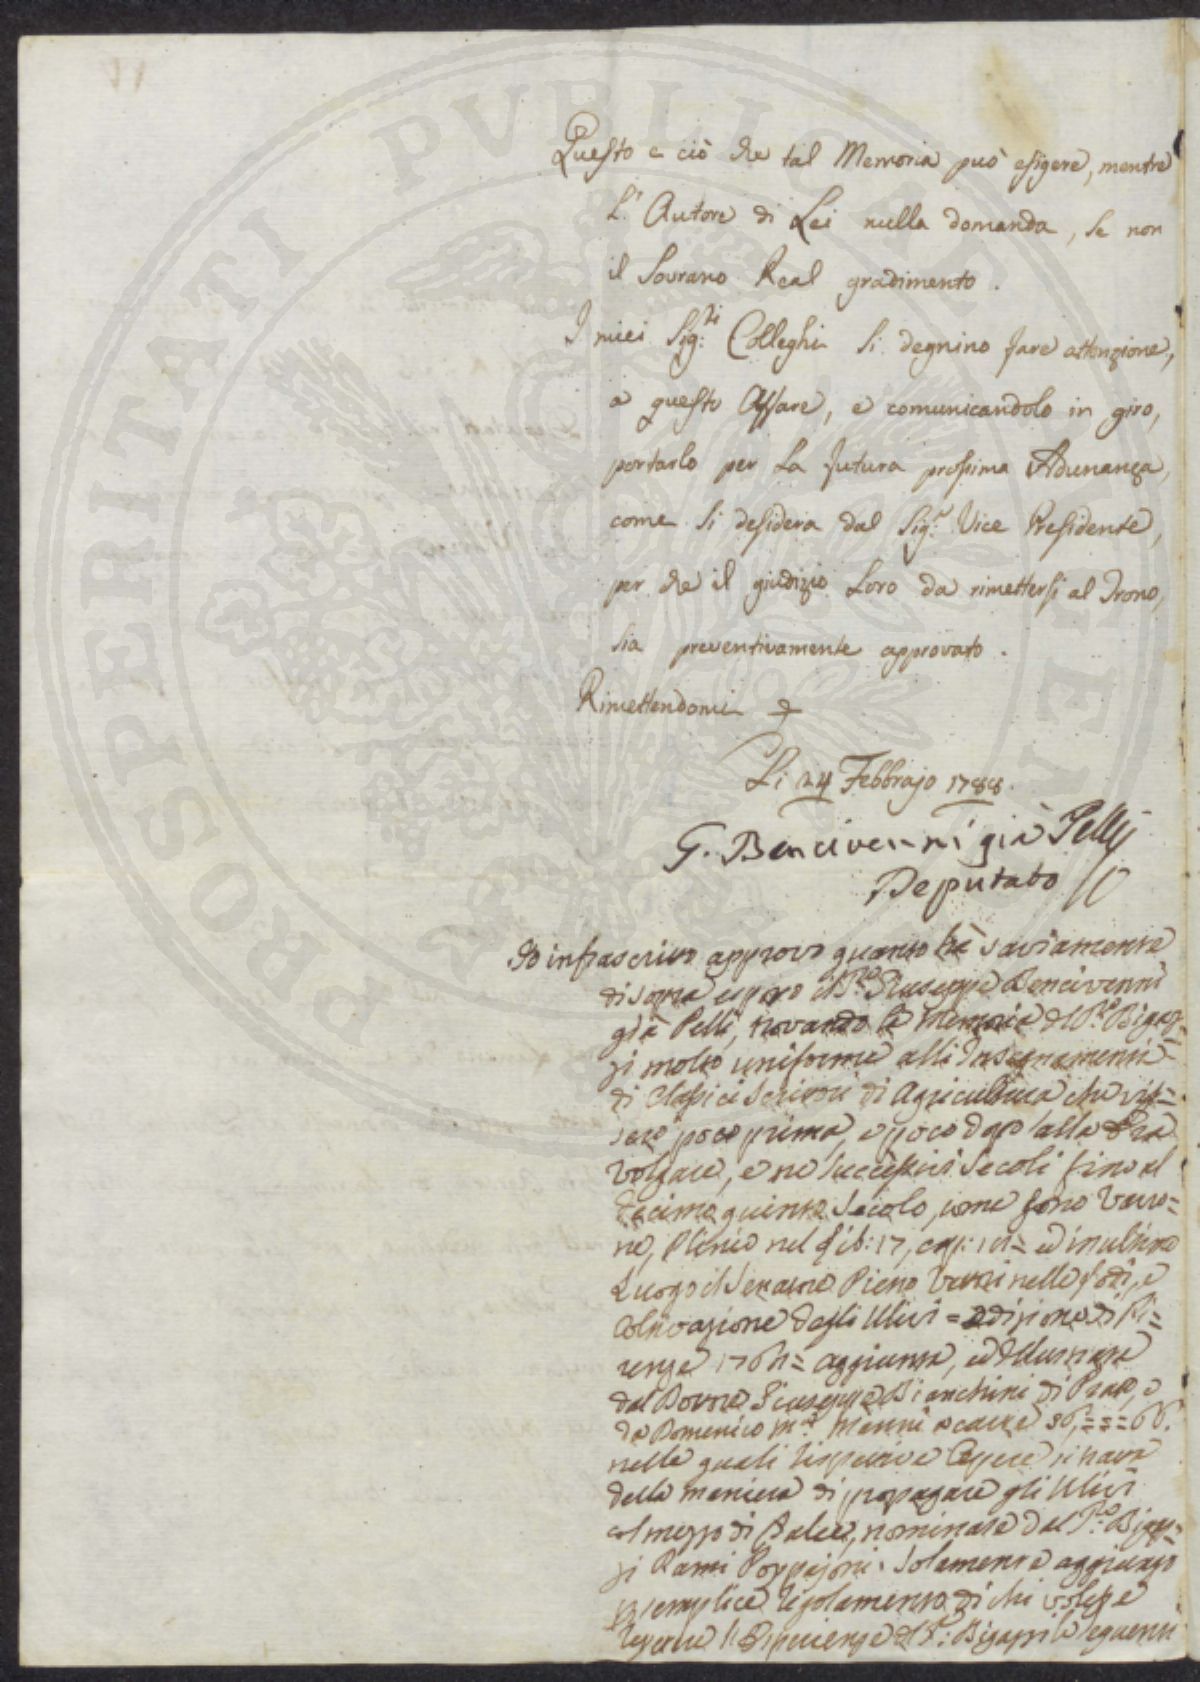 PROSPERITATI PUBLICAE
Questo e ciò che tal Memoria può esigere, mentre
L'Autore di Lei nulla domanda, se non
il Sovrano Real gradimento.
I miei Sig:ri Colleghi si degnino fare attenzione,
a questo Affare, e comunicandolo in giro,
portarlo per la futura prossima Adunanza,
come si desidera dal Sig:r Vice Presidente,
per che il giudizio Loro da rimettersi al Trono,
sia preventivamente approvato.
Rimettendomi
Li 24 Febbrajo 1788.
G. Bencivenni già Pelli
Deputato
Io infrascritto approvo quanto hà saviamente
di sopra esposto il Giuseppe Bencivenni
già Pelli, trovando la Memoria del Bigaz=
zi molto uniforme alli Insegnamenti
di Classici Scrittori di Agricultura che vis=
sero poco prima, e poco dopo alla Era
Volgare, e ne successivi Secoli fino al
decimo quinto Secolo, come sono Varro=
ne, Plinio nel Lib: 17, cap: ed in ultimo
Luogo il Senatore Piero Vettori nelle Lodi, e
Coltivazione degli Ulivi = edizione di Fi=
renze aggiunta, ed illustrata
dal Dottore Giuseppe Bianchini di Prato, e
da Domenico M.a Manni a carte
nelle quali rispettive Opere si trova
della maniera di propagare gli Ulivi
col mezzo di nominate dal Bigaz=
zi Rami Poppajoni. Solamente aggiungo
semplice regolamento di chi volesse
Esperienze del Bigazzi le seguenti